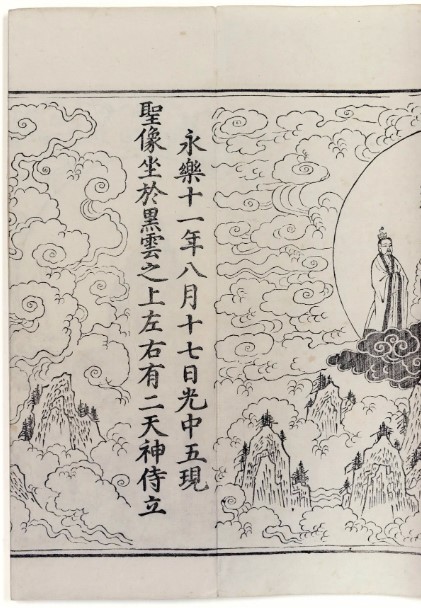 永樂十一年八月十七日光中五現
聖像坐於黒雲之上左右有二天神侍立